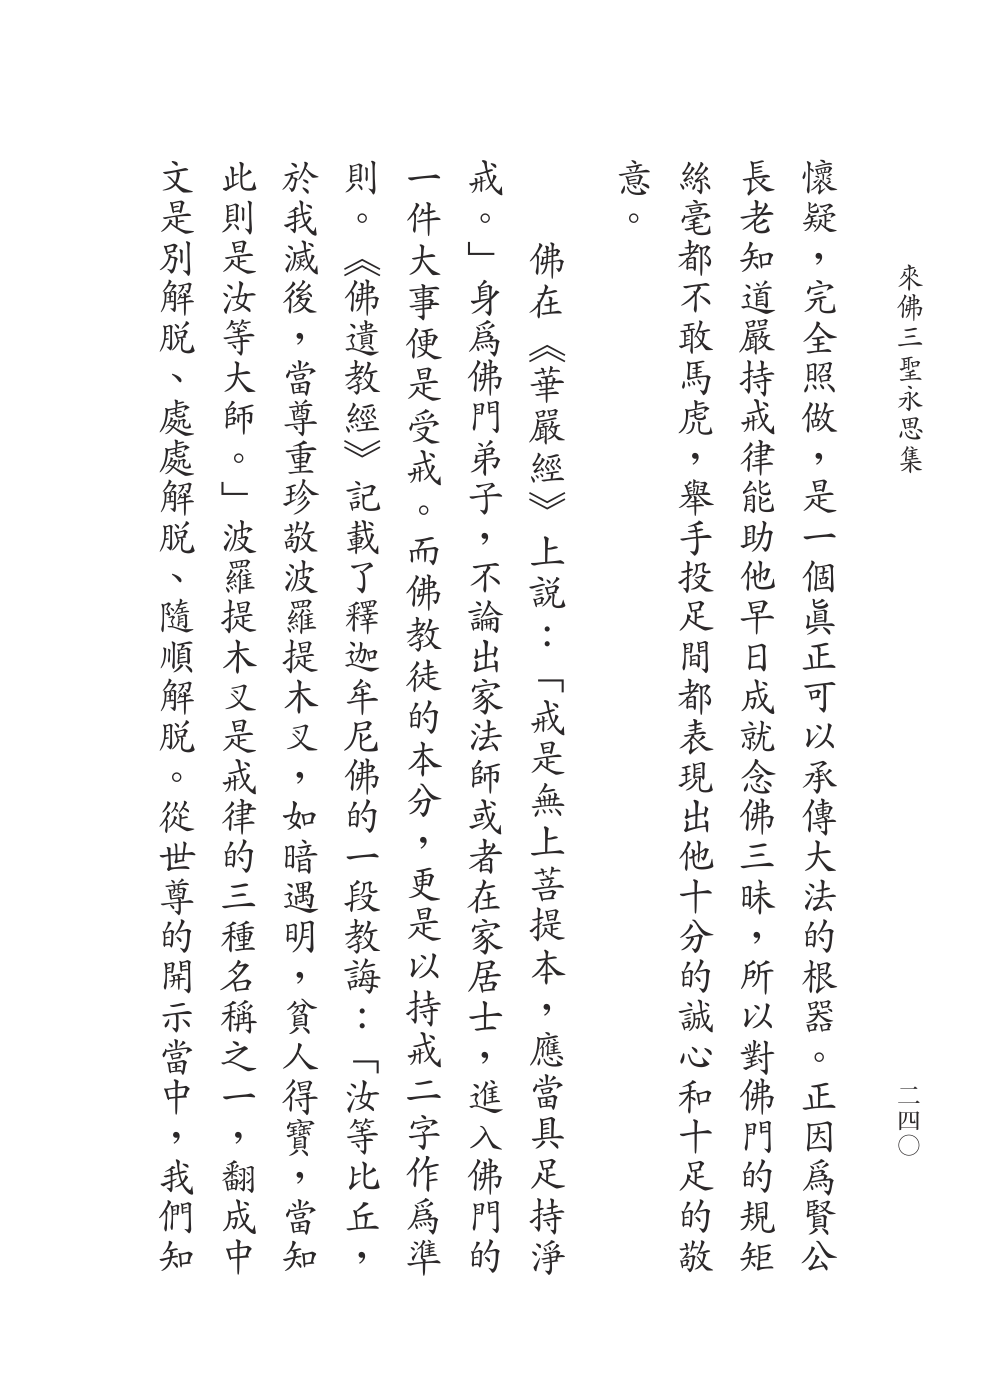 來佛三聖永思集
二四〇
懷疑，完全照做，是一個眞正可以承傳大法的根器。正因爲賢公
長老知道嚴持戒律能助他早日成就念佛三昧，所以對佛門的規矩
絲毫都不敢馬虎，舉手投足間都表現出他十分的誠心和十足的敬
意。
佛在《華嚴經》上説：「戒是無上菩提本，應當具足持淨
戒。」身爲佛門弟子，不論出家法師或者在家居士，進入佛門的
一件大事便是受戒。而佛教徒的本分，更是以持戒二字作爲準
則。《佛遺教經》記載了釋迦牟尼佛的一段教誨：「汝等比丘，
於我滅後，當尊重珍敬波羅提木叉，如暗遇明，貧人得寶，當知
此則是汝等大師。」波羅提木叉是戒律的三種名稱之一，翻成中
文是別解脱、處處解脱、隨順解脱。從世尊的開示當中，我們知